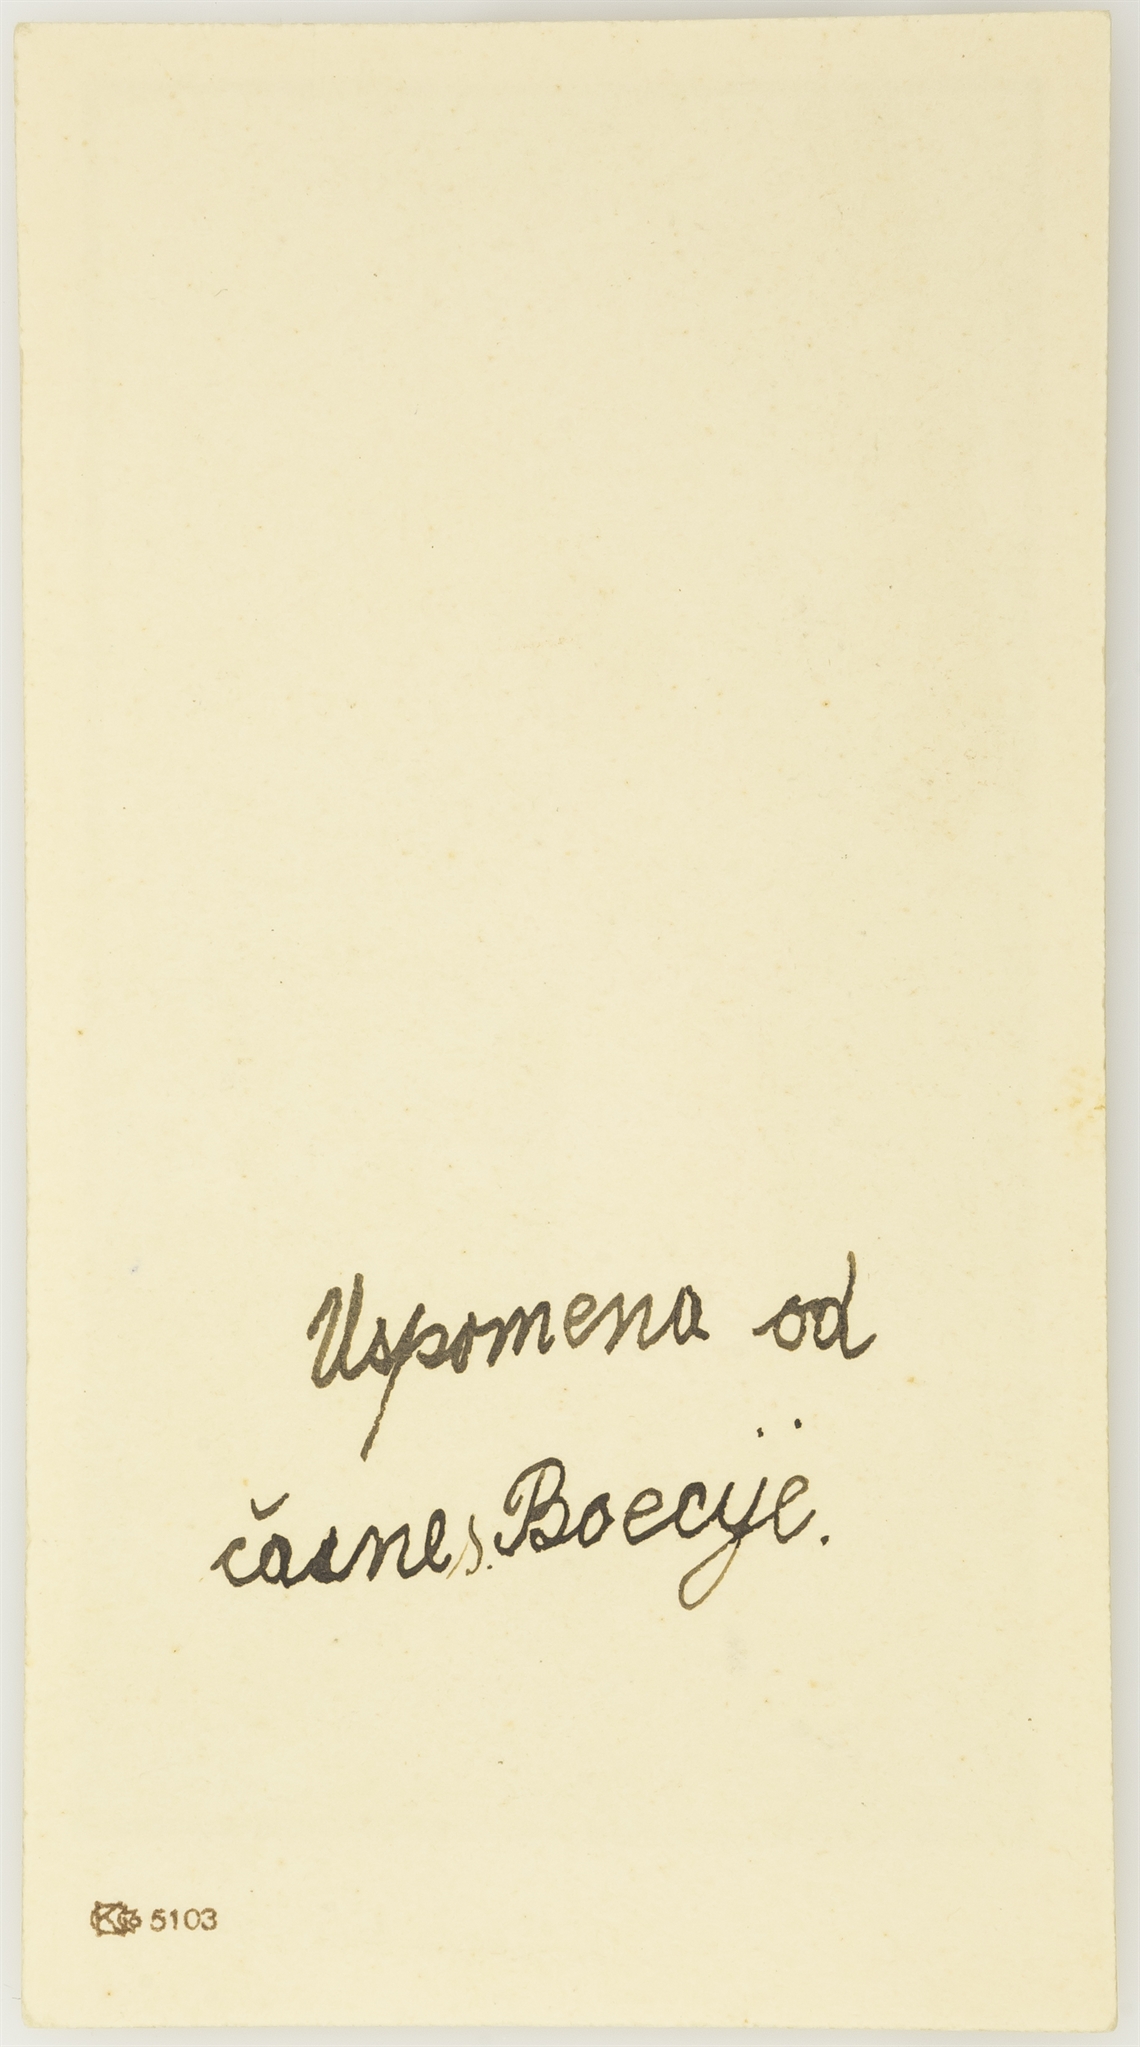 Uspomena od
časne s. Boecije.
5103